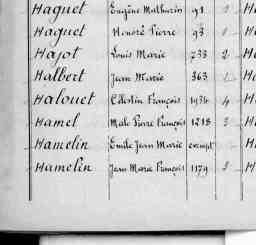 Haguet Eugène Mathurin 91 2
Haguet Honoré Pierre 93 1
Hajot Louis Marie 733 2
Halbert Jean Marie 363 1
Halouet Célestin François 1934 4
Hamel Malo Pierre François 1218 3
Hamelin Emile Jean Marie exempt
Hamelin Jean Marie François 1179 3